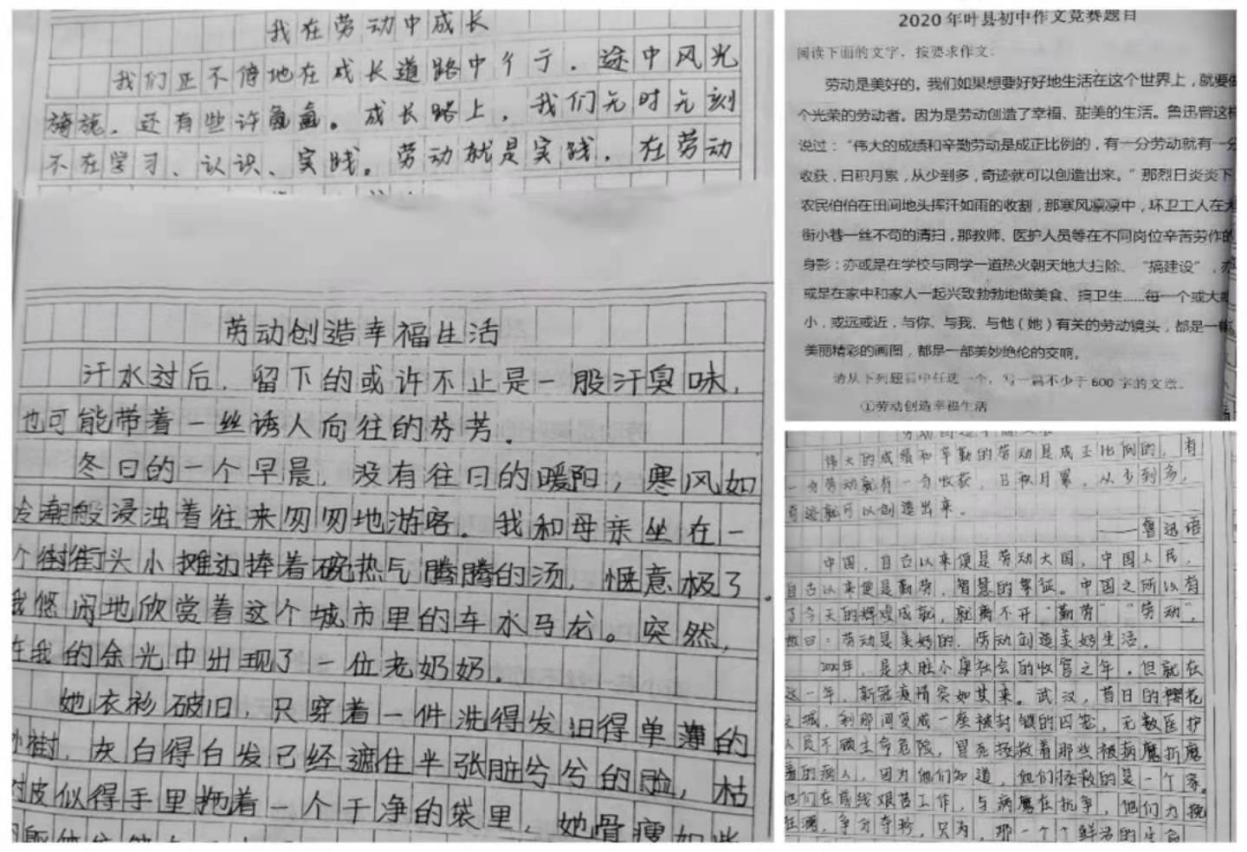 我在劳动中成长
我们正不停地在成长道路中个于．途中风光
旖旎，还有些许。成长路上，我们无时无刻
不在学习、认识、实践。劳动就是实践，在劳动
劳动创造幸福生活
汗水过后，留下的或许不止是一股汗臭味，
也可能带着一丝诱人向往的芬芳．
冬日的一个早晨，没有往日的暖阳，寒风如
冷潮般浸浊着往来匆匆地游客。我和母亲坐在一
个街头小摊边捧着碗热气腾腾的汤，惬意极了．
我悠闲地欣赏着这个城市里的车水马龙。突然，
在我的余光中出现了一位老奶奶．
她衣衫破旧，只穿着一件洗得发旧得单薄的
灰白得白发已经遮住半张脏兮兮的脸，枯
皮似得手里抱着一个干净的袋里，她骨瘦如柴
2020年叶县初中作文竞赛题目
阅读下面的文字，按要求作文：
劳动是美好的。我们如果想要好好地生活在这个世界上，就要做
个光荣的劳动者。因为是劳动创造了幸福、甜美的生活。鲁迅曾这样
说过：“伟大的成绩和辛勤劳动是成正比例的，有一分劳动就有一分
收获，日积月累，从少到多，奇迹就可以创造出来。”那烈日炎炎下
农民伯伯在田间地头挥汗如雨的收割，那寒风凛凛中，环卫工人在大
街小巷一丝不苟的清扫，那教师、医护人员等在不同岗位辛苦劳作的
身影；亦或是在学校与同学一道热火朝天地大扫除、“搞建设”，亦
或是在家中和家人一起兴致勃勃地做美食、搞卫生……每一个或大或
小，或远或近，与你、与我、与他（她）有关的劳动镜头，都是一幅
美丽精彩的画图，都是一部美妙绝伦的交响。
请从下列题目中任选一个，写一篇不少于600字的文章。
①劳动创造幸福生活
伟大的成绩和辛勤的劳动是成正比例的，有
一分劳动就有一分收获，日积月累，从少到多，
奇迹就可以创造出来。
——鲁迅语
中国，自古以来便是劳动大国，中国人民，
自古以来便是勤劳，智慧的象征。中国之所以有
了今天的辉煌成就，就离不开“勤劳”“劳动”，
曰：劳动是美好的，劳动创造美好生活。
2020年，是决胜小康社会的收官之年，但就在
这一年，新冠疫情突如其来。武汉，昔日的樱花
之城，刹那间变成一座被封锁的囚笼，无数医护
人员不顾生命危险，冒死拯救着那些被病魔折磨
着的病人，因为他们知道，他们拯救的是一个家。
他们在前线艰苦工作，与病魔在抗争，他们力挽
狂澜，争分夺秒，只为，那一个个鲜活的生命